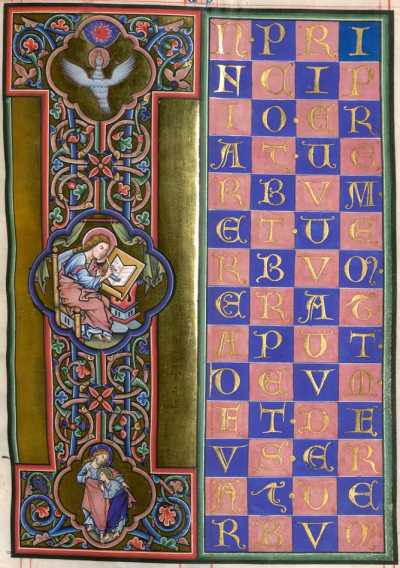 I
NPRI
NCIP
IO·ER
AT·UE
RBVM
ET·UE
RBVM
ERAT
APUT·
DEVM
ET·DE
VS·ER
AT·UE
RBVM